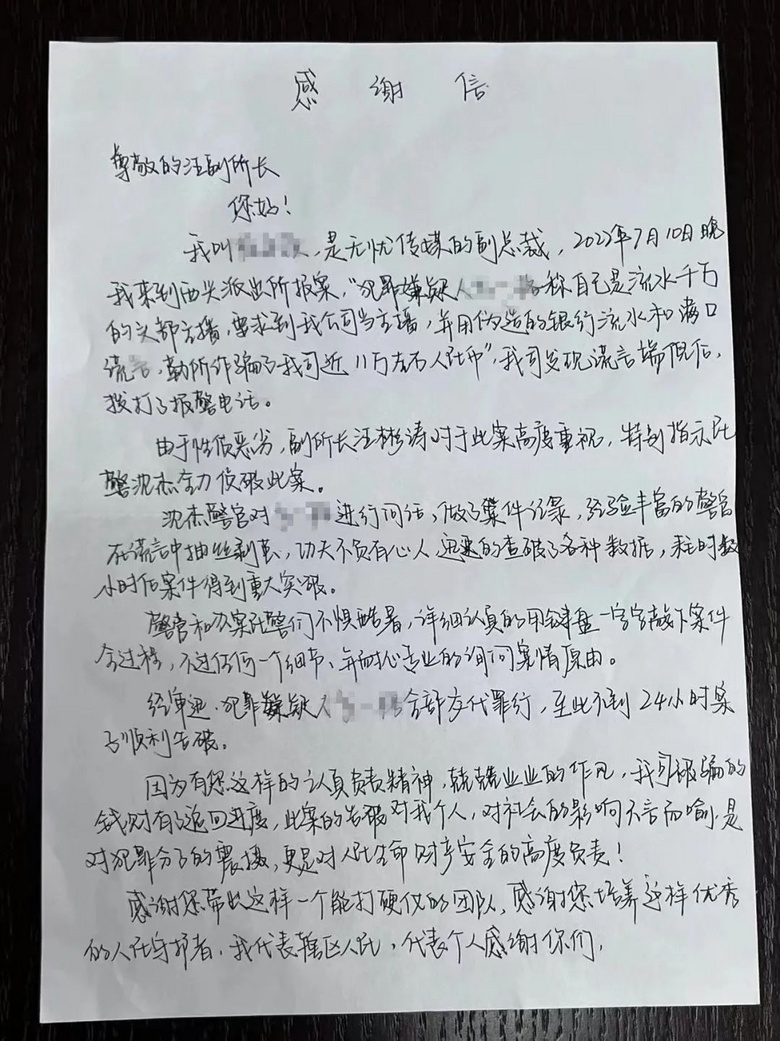 感谢信
尊敬的汪副所长
您好!
我叫,是无忧传媒的副总裁,2022年7月10日晚
我来到西头派出所报案,"犯罪嫌疑人称自己是流水千万
的头部主播,要求到我公司当主播,并用伪造的银行流水和满口
谎言,勒所诈骗了我司近11万左右人民币",我司发现谎言端倪后,
拨打了报警电话。
由于性质恶劣,副所长汪彬涛对于此案高度重视,特别指示民
警沈杰全力侦破此案。
沈杰警官对进行问话,做了案件记录,经验丰富的警官
在谎言中抽丝剥茧,功夫不负有心人,迅速的查破了各种数据,耗时数
小时后案件得到重大突破。
警官和办案民警们不惧酷暑,详细认真的用键盘一字字敲下案件
全过程,不过任何一个细节,并耐心专业的询问案情原由。
经审迅,犯罪嫌疑人全部交代罪行,至此不到24小时案
子顺利告破。
因为有您这样的认真负责精神,兢兢业业的作风,我司被骗的
钱财有了追回进度,此案的告破对我个人,对社会的影响不言而喻,是
对犯罪分子的震摄,更是对人民生命财产安全的高度负责!
感谢您带出这样一个能打硬仗的团队,感谢您培养这样优秀
的人民守护者,我代表辖区人民,代表个人感谢你们,